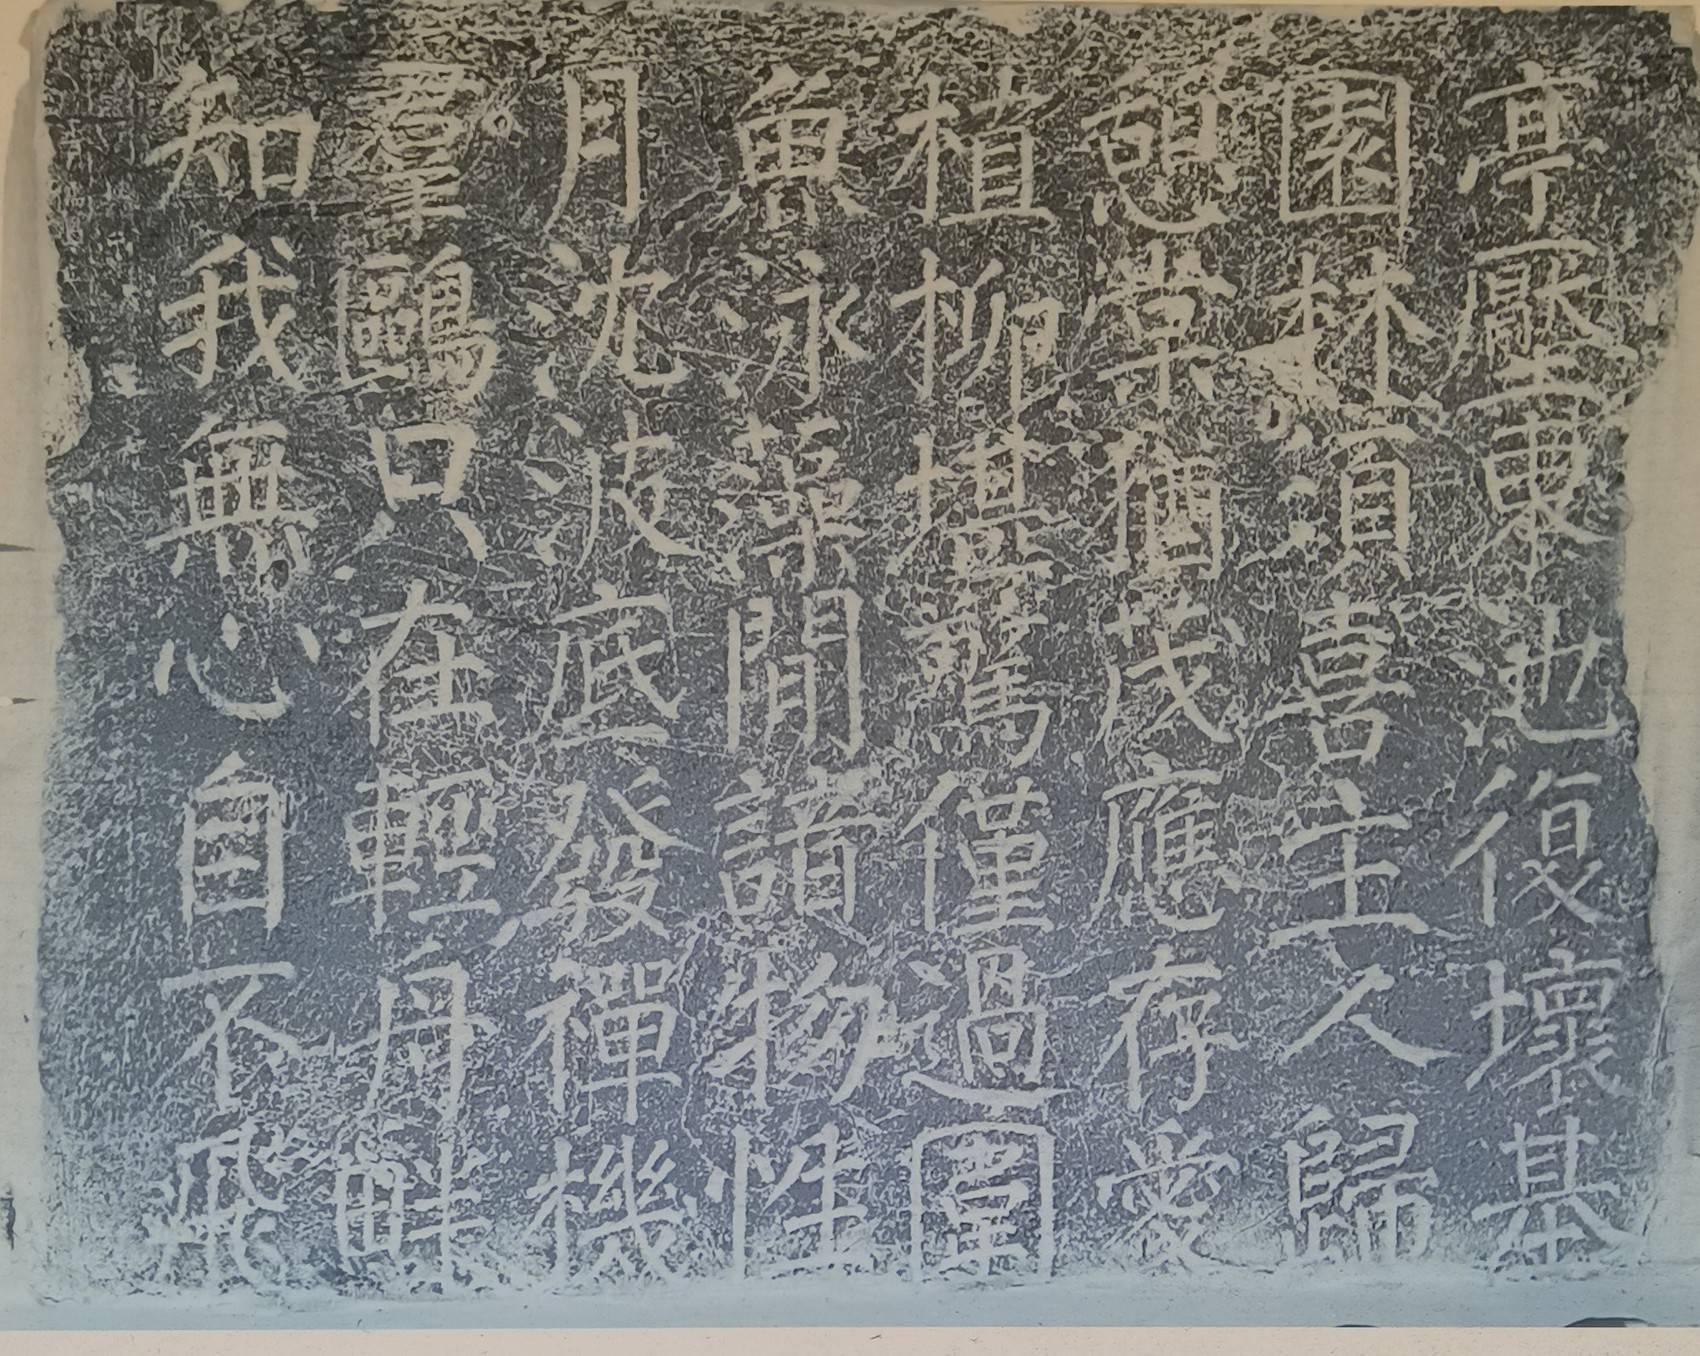 亭壓東池復壞基
園林須喜主人歸
憩棠猶茂應存愛
植柳堪驚僅過圍
魚泳藻間諳物性
月沈波底發禪機
羣鷗只在輕舟畔
知我無心自不飛